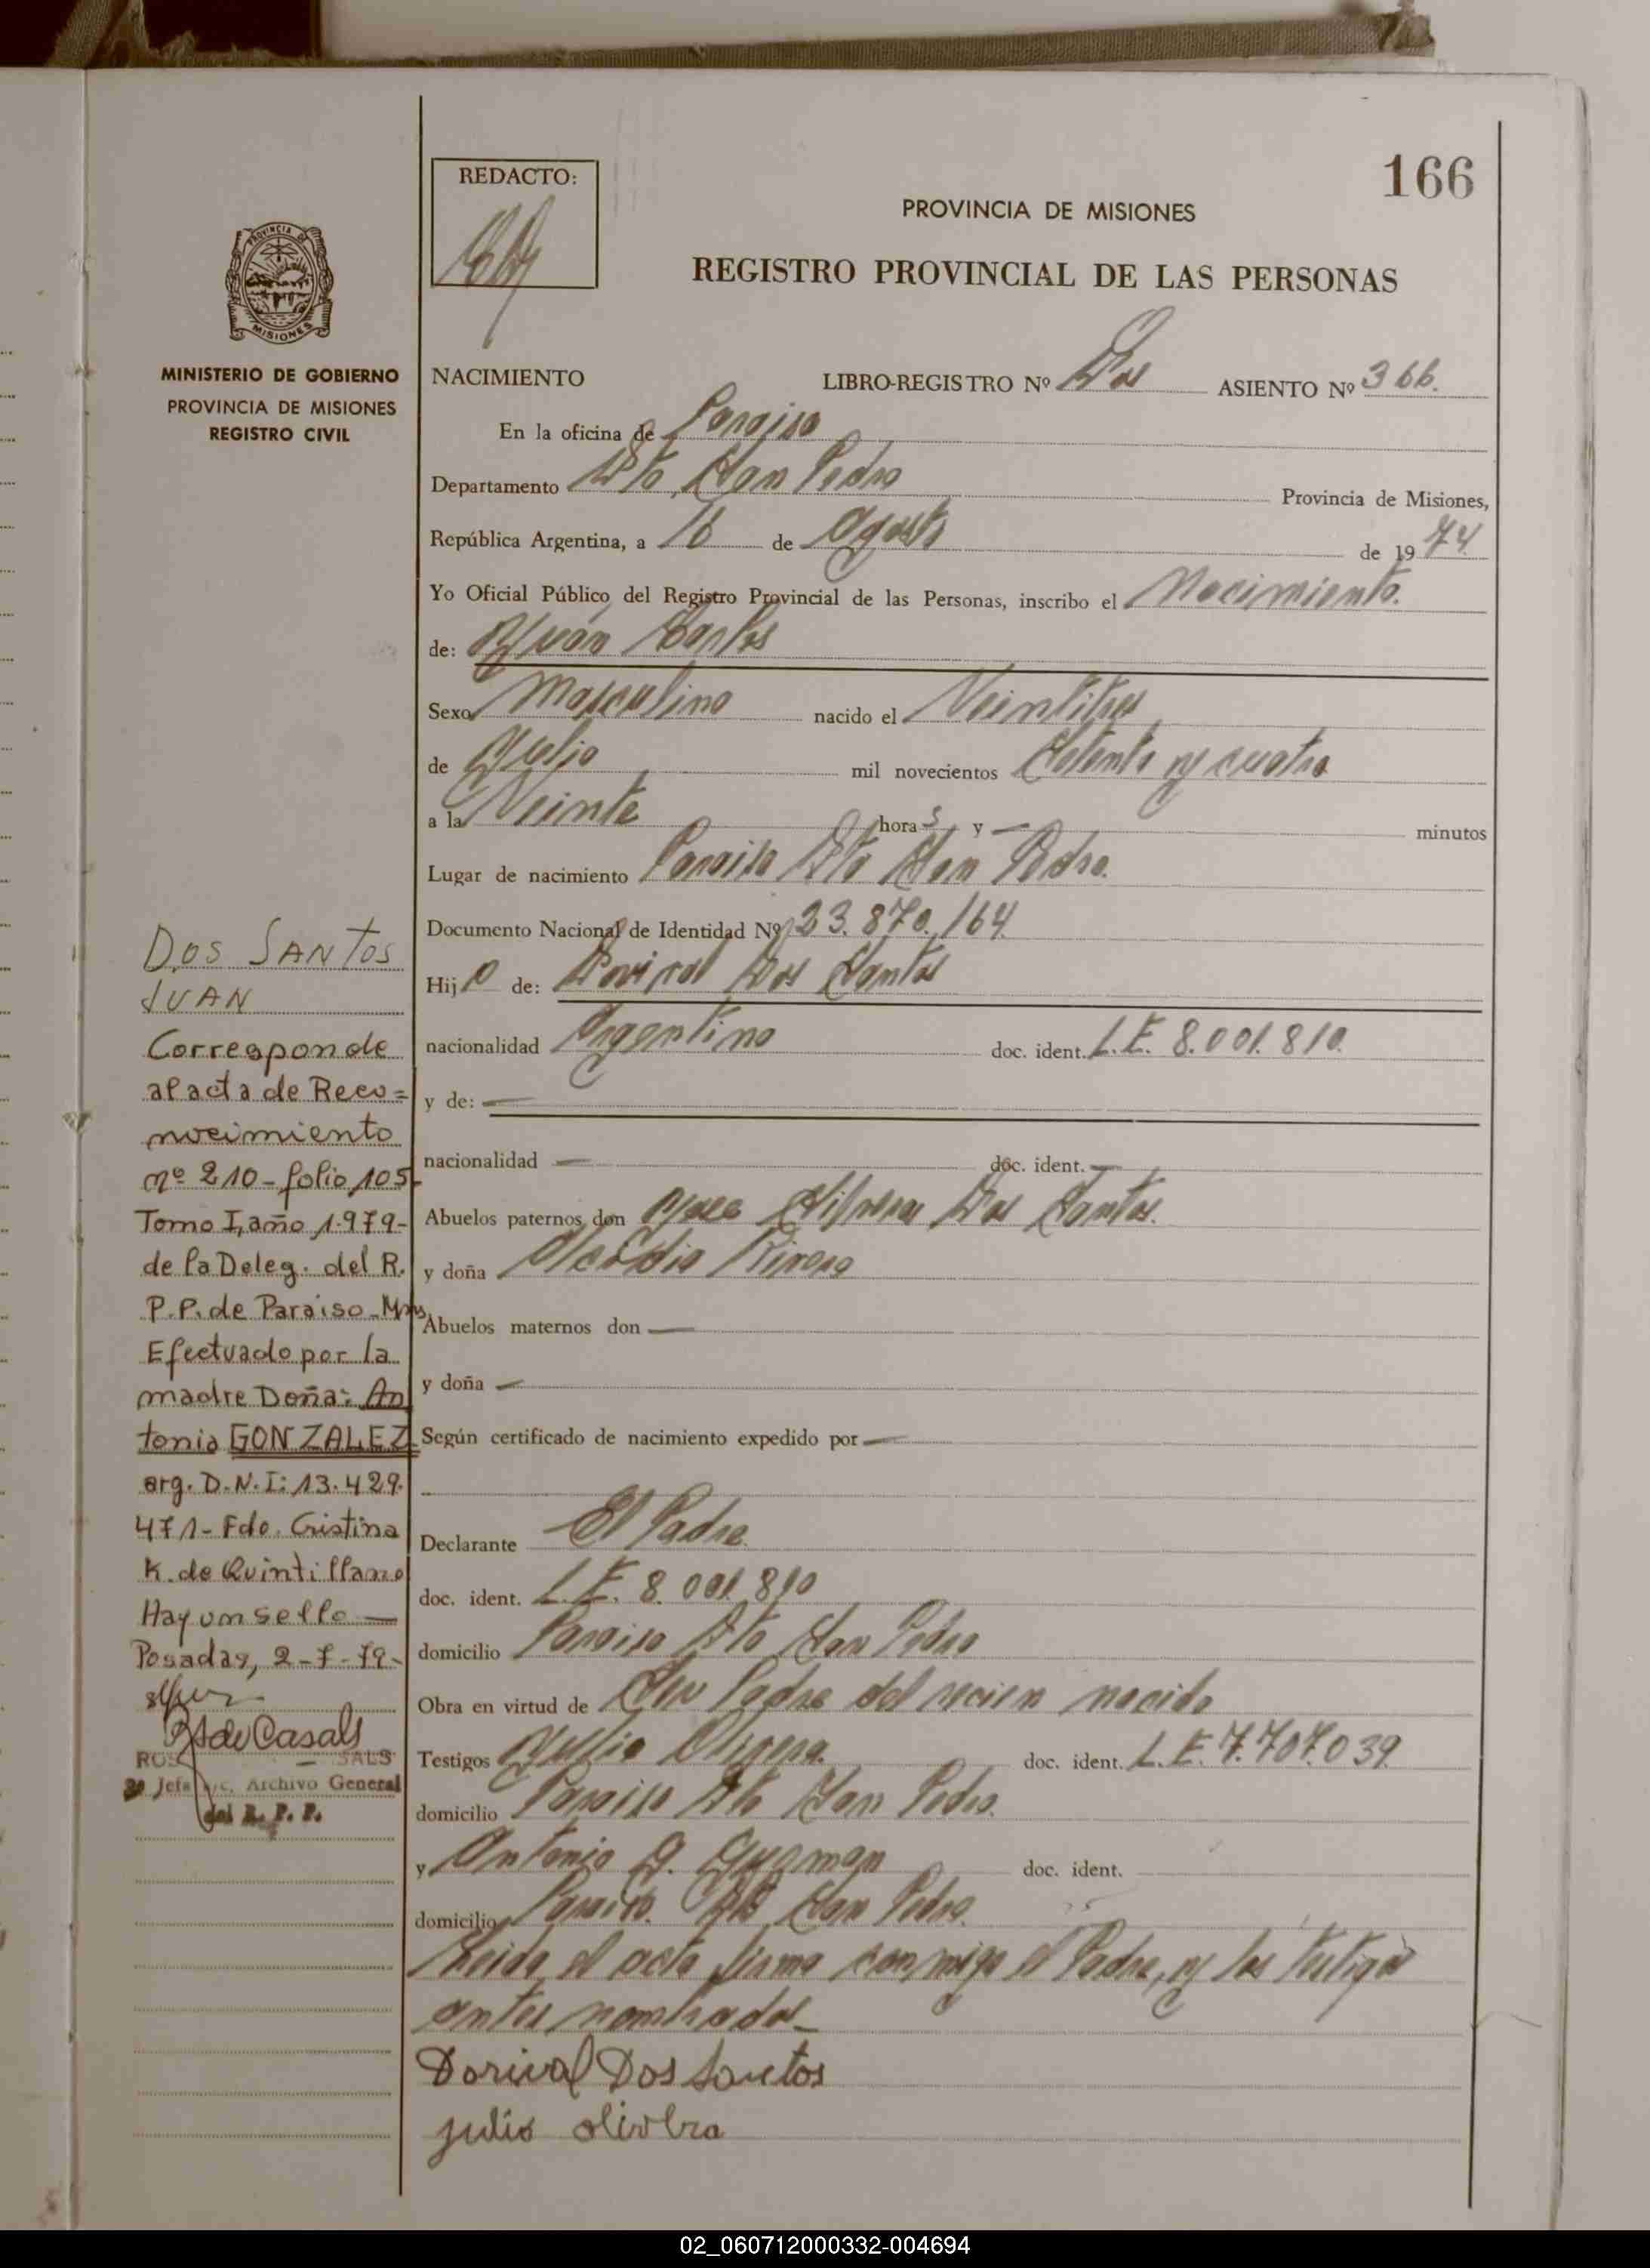 166
REDACTO:
PROVINCIA DE MISIONES
REGISTRO PROVINCIAL DE LAS PERSONAS
PROVINCIA DE
MISIONES
MINISTERIO DE GOBIERNO
PROVINCIA DE MISIONES
REGISTRO CIVIL
NACIMIENTO LIBRO-REGISTRO Nº Dos ASIENTO Nº 366.
En la oficina de Paraiso
Departamento Dto San Pedro Provincia de Misiones,
República Argentina, a 16 de Agosto de 1974
Yo Oficial Público del Registro Provincial de las Personas, inscribo el Nacimiento.
de: Juán
Sexo Masculino nacido el Veintitres
de Julio mil novecientos Setenta y cuatro
a la Veinte horas y — minutos
Lugar de nacimiento Paraiso Dto San Pedro.
Documento Nacional de Identidad Nº 23.870.164
Hijo de: Dorival Dos Santos
nacionalidad Argentino doc. ident. L.E. 8.001.810.
y de: —
nacionalidad — doc. ident. —
Abuelos paternos don Dos Santos.
y doña
Abuelos maternos don —
y doña —
Según certificado de nacimiento expedido por —
Declarante El Padre
doc. ident. L.E. 8.001.810
domicilio Paraiso Dto San Pedro
Obra en virtud de Ser Padre del recien nacido
Testigos Julio doc. ident. L.E. 7.707.039.
domicilio Paraiso Dto San Pedro.
y Antonio G. Guzman doc. ident.
domicilio Paraiso. Dto San Pedro.
Leida el acta firma conmigo el Padre, y los testigos
antes nombrados—
Dorival Dos Santos
julio oliveira
DOS SANTOS
JUAN
Corresponde
al acta de Reco=
nocimiento
nº 210-folio 105-
Tomo I, año 1.979-
de la Deleg. del R.
P.P. de Paraiso-Mns
Efectuado por la
madre Doña: An
tonia GONZALEZ
arg. D.N.I: 13.429.
471- Fdo. Cristina
K. de Quintillano
Hay un sello —
Posadas, 2-7-79-
de Casals
Archivo General
del R. P. P.
02_060712000332-004694